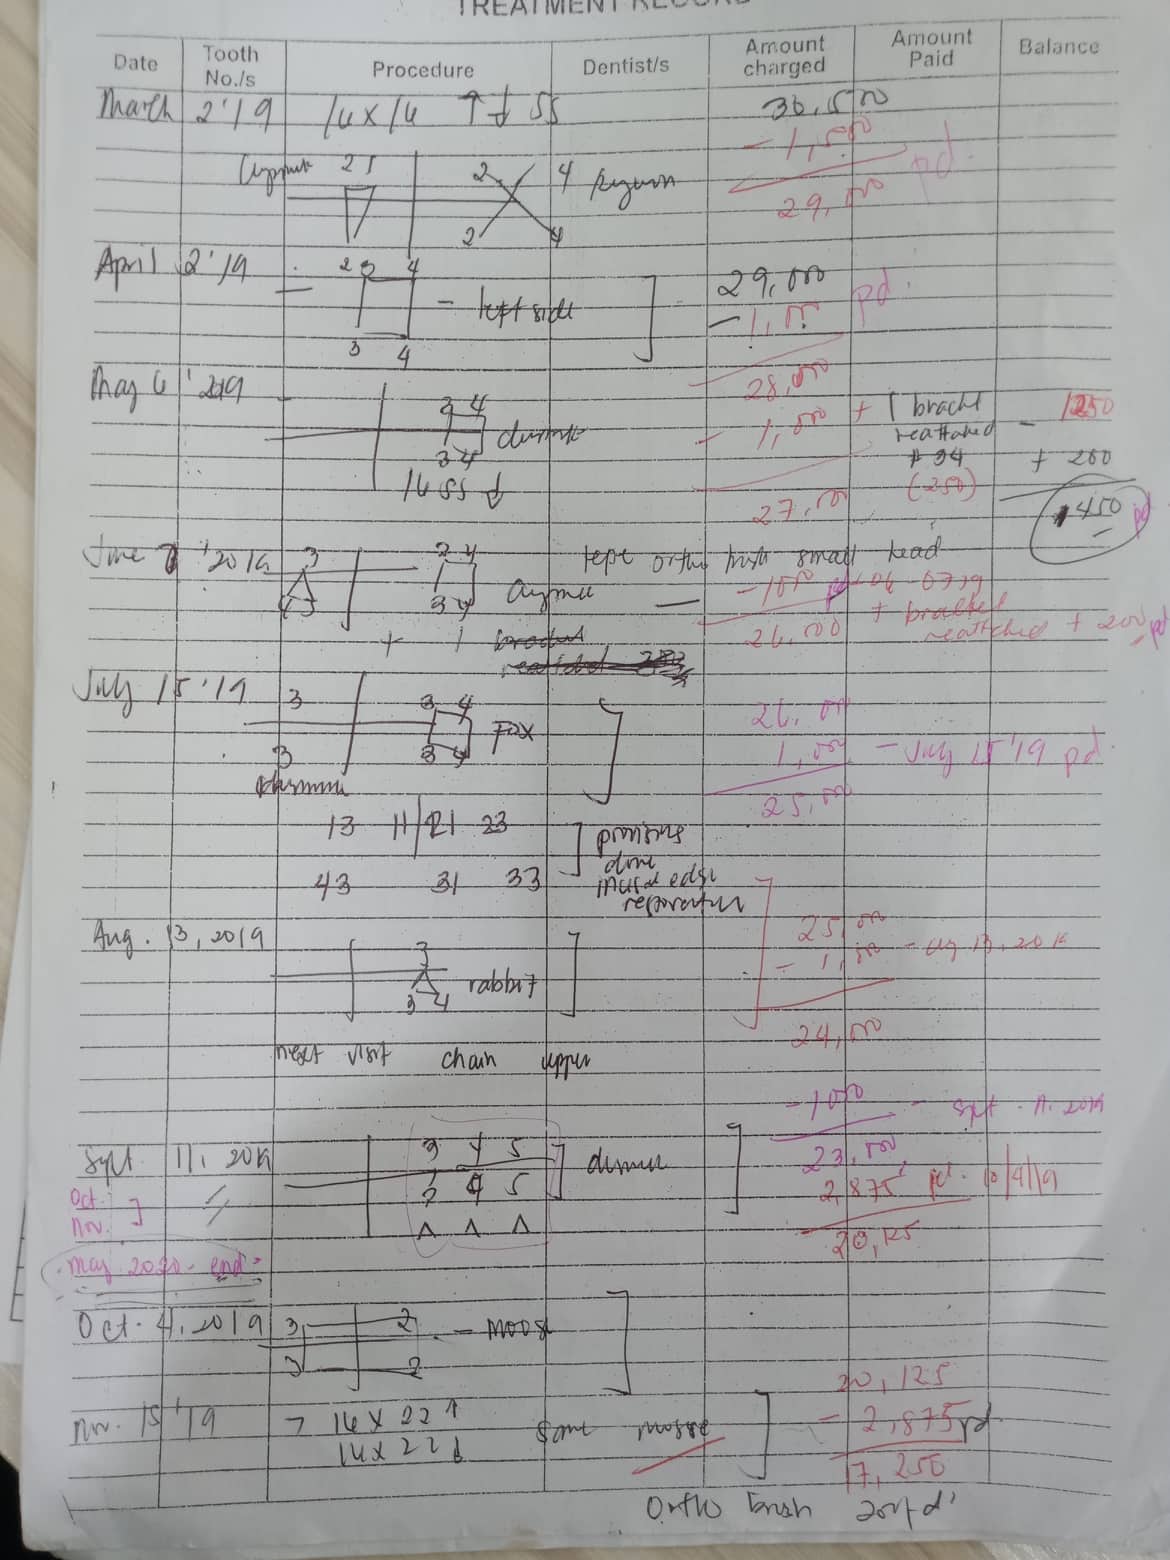 TREATMENT RECORD
Date Tooth No./s Procedure Dentist/s Amount charged Amount Paid Balance
March 2'19 16 x 16 ↑↓ SS 30,500
- 1,500 pd.
upper 2 2 4
29,000
2 4
April 2'19 2 3 4 29,000
- left side - 1,000 pd.
3 4
28,000
May 6 '2019 3 4 - 1,000 + 1 bracket reattached - 1250
3 4 # 34 + 200
16 SS ↓ (250)
27,000 1450 pd
June 7 '2019 3 3 4 tepe ortho brush small head
3 4 - 1000 pd 06-07-19
26,000 + bracket reattached + 200 pd
+ 1 bracket reattached
July 15 '19 3 3 4 26,000
3 3 4 FOX 1,000 - July 15 '19 pd.
25,000
13 11 21 23 previous done incisal edge restoration
43 31 33
Aug. 13, 2019 25,000
3 - 1,000 - Aug 13, 2019
3 4 rabbit
24,000
next visit chain upper
- 1000 - Sept. 11. 2019
Sept. 11, 2019 3 4 5 23,000
Oct. Nov. 3 4 5 2,875 pd. 10/4/19
20,125
May 2020 - end
Oct. 4, 2019 3 2 - moose
3 2
20,125
Nov. 15 '19 → 16 x 22 ↑ same moose - 2,875 pd.
16 x 22 ↓
17,250
Ortho brush